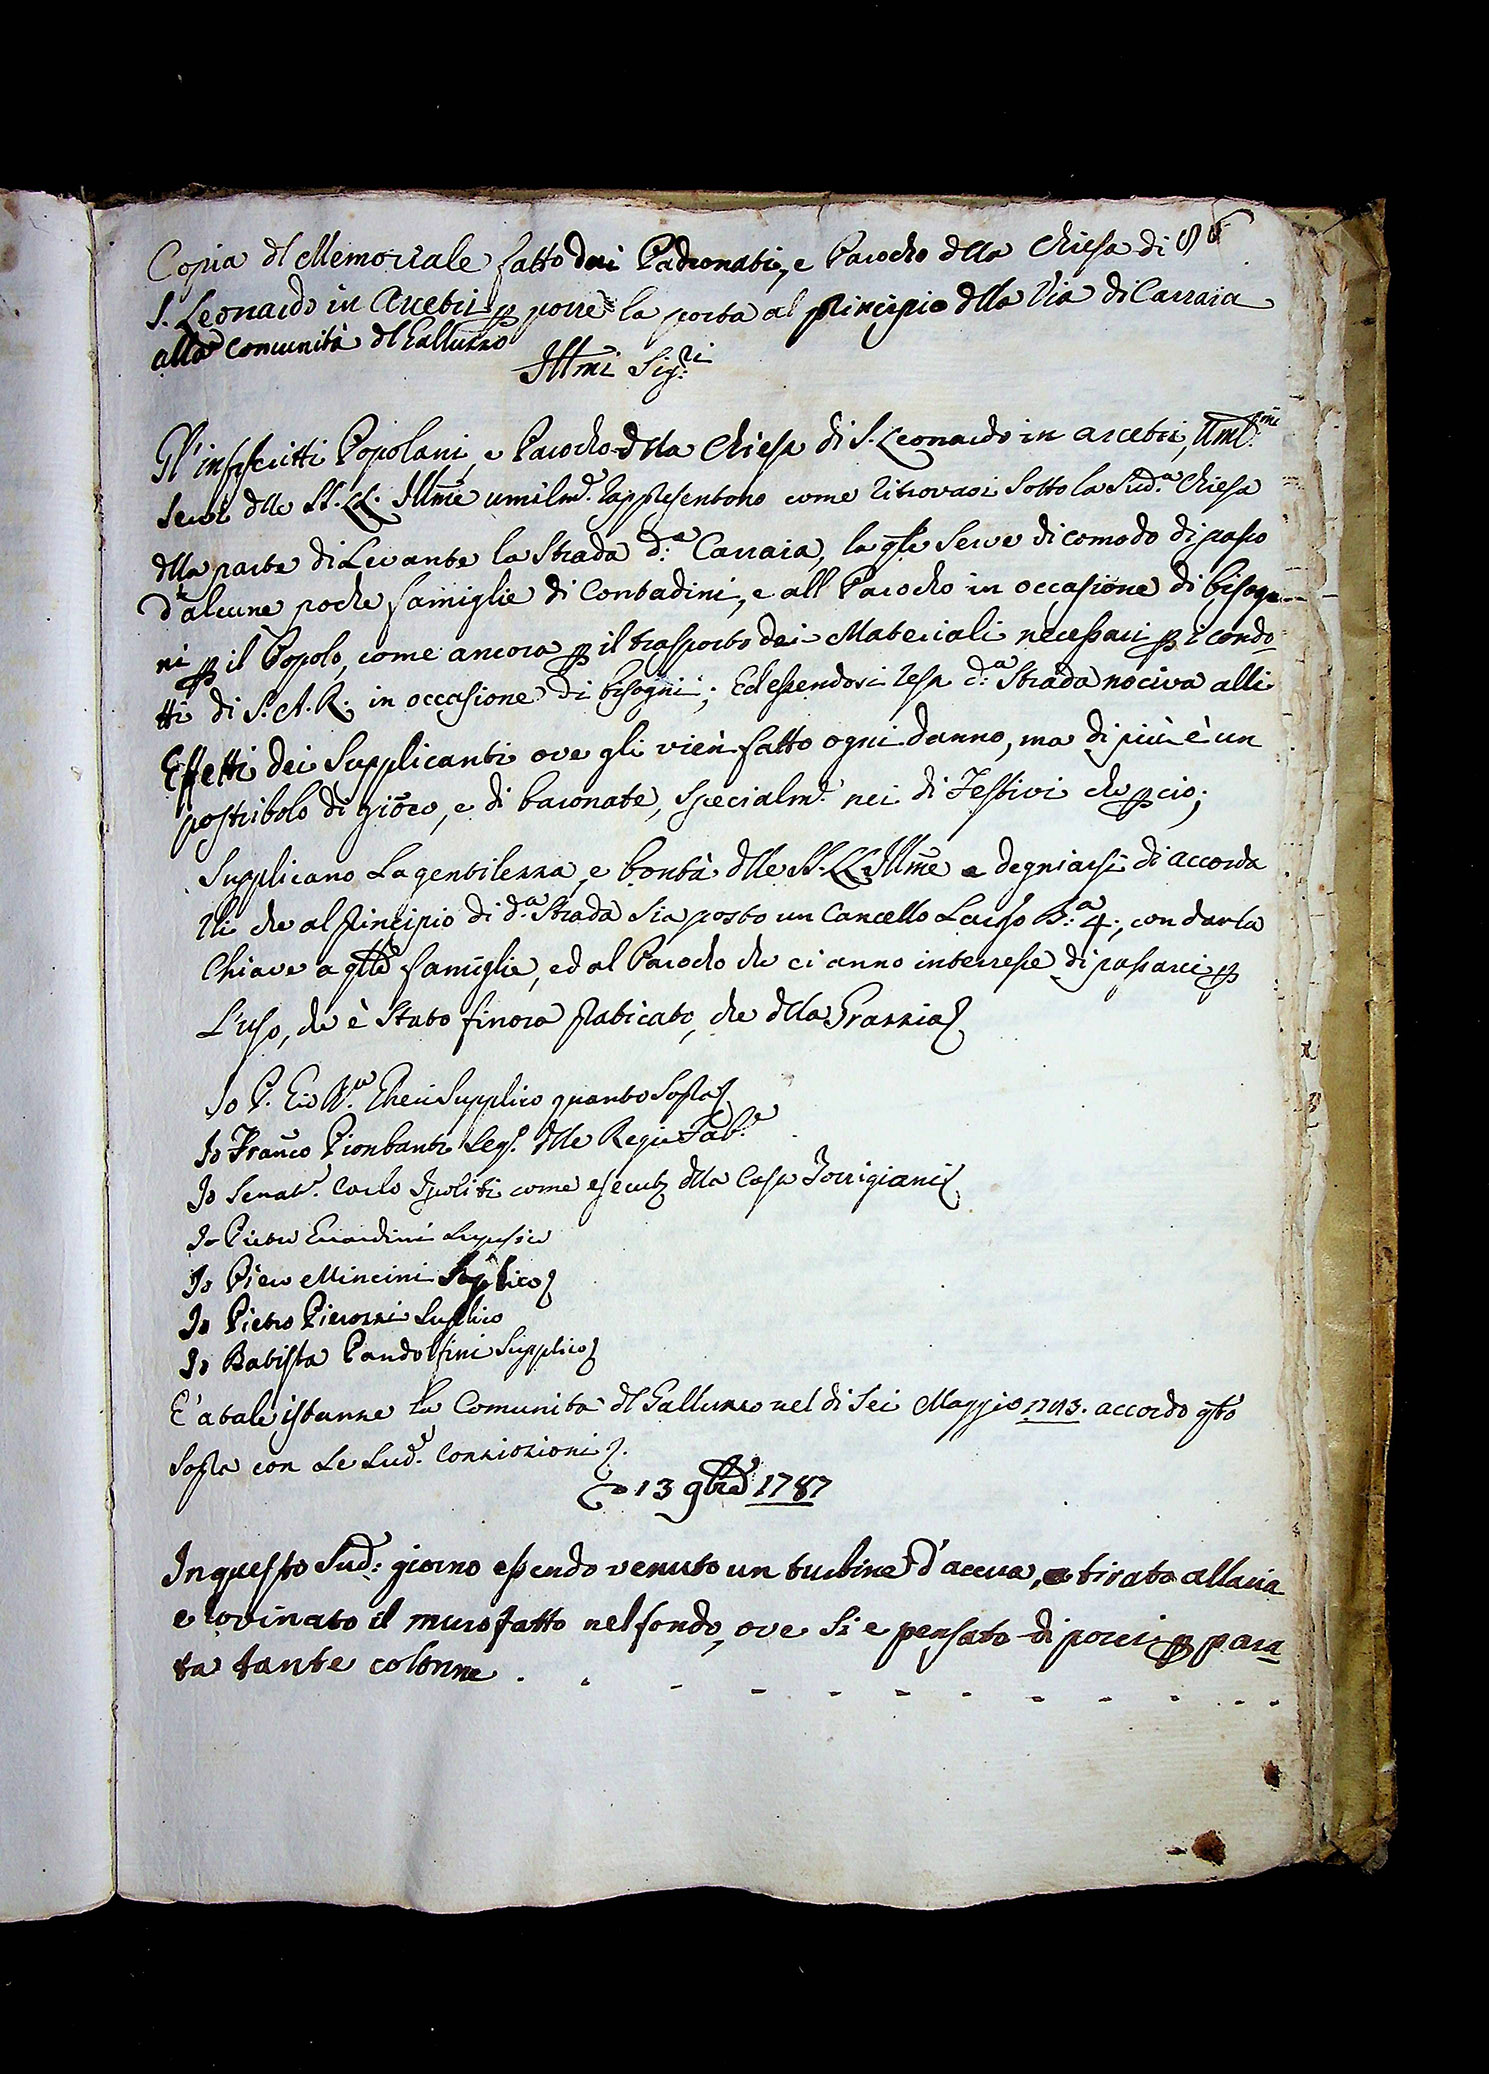 Copia dl Memoriale fatto dai Padronati, e Parocho dlla Chiesa di
S. Leonardo in Arcetri p porre la porta al principio dlla Via di Carraia
alla comunità dl Galluzzo
Illmi Sig.ri
Gl'infrscritti Popolani, e Parocho dlla Chiesa di S. Leonardo in arcetri, Uml.mi
Servi dlle SS. LL. Illme umilmd. rappresentono come ritrovasi sotto la Sud.a Chiesa
dlla parte di Levante la Strada d.a Carraia, la qle serve di comodo di passo
d'alcune poche famiglie di Contadini, e all Parocho in occasione di bisog
ni p il Popolo, come ancora p il trasporto dei Materiali necessari p i condo-
tti di S. A. R. in occasione di bisogni; Ed essendosi resa d.a Strada nociva alli
Effetti dei Supplicanti ove gli vien fatto ogni danno, ma di più è un
postribolo di gioco, e di baronate, specialm.e nei di Festivi che p cio;
Supplicano La gentilezza, e bontà dlle SS. LL. Illme a degniarsi di accorda
rli che al principio di d.a Strada sia posto un Cancello Largo B.a 4., con dar la
Chiave a qlle famiglie, ed al Parocho che ci anno interresse di passarci p
L'uso, che è stato finora praticato, che dlla Grazzia
Io P. Gio Supplico quanto Sopra
Io Franco Pionbanti Seg. dlle Regie Fab.e
Io Senat.e Carlo Ipoliti come esecut dlla Casa Torrigiani
Io Pietro
Io Piero Mincini Suplico
Io Pietro Pierozzi Suplico
Io Batista Pandolfini Supplico
E' a tale istanza la Comunità dl Galluzzo nel di Sei Maggio accordo qto
Sopra con Le Sud.e Conzizioni
13 9bre 1787
In questo Sud: giorno essendo venuto un turbine d'accua, a tirato allaria
e rovinato il muro fatto nel fondo, ove Si e pensato di porci p para-
ta tante colonne . . - - - - - - - - . . -